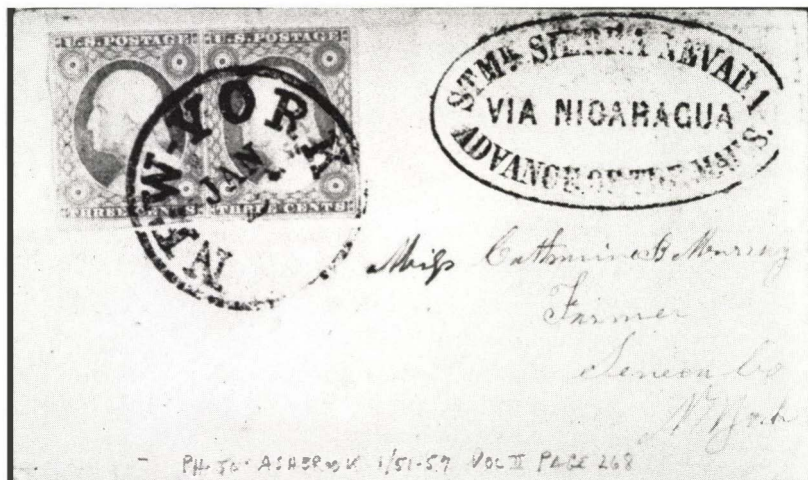 U.S. POSTAGE U.S. POSTAGE
THREE CENTS THREE CENTS
NEW-YORK
JAN
STMR SIERRA NEVADA
VIA NICARAGUA
ADVANCE OF THE MAILS.
Miss Catharine B Murray
Farmer
Seneca Co
N York
- PHOTO ASHBROOK 1/51-57 VOL II PAGE 268